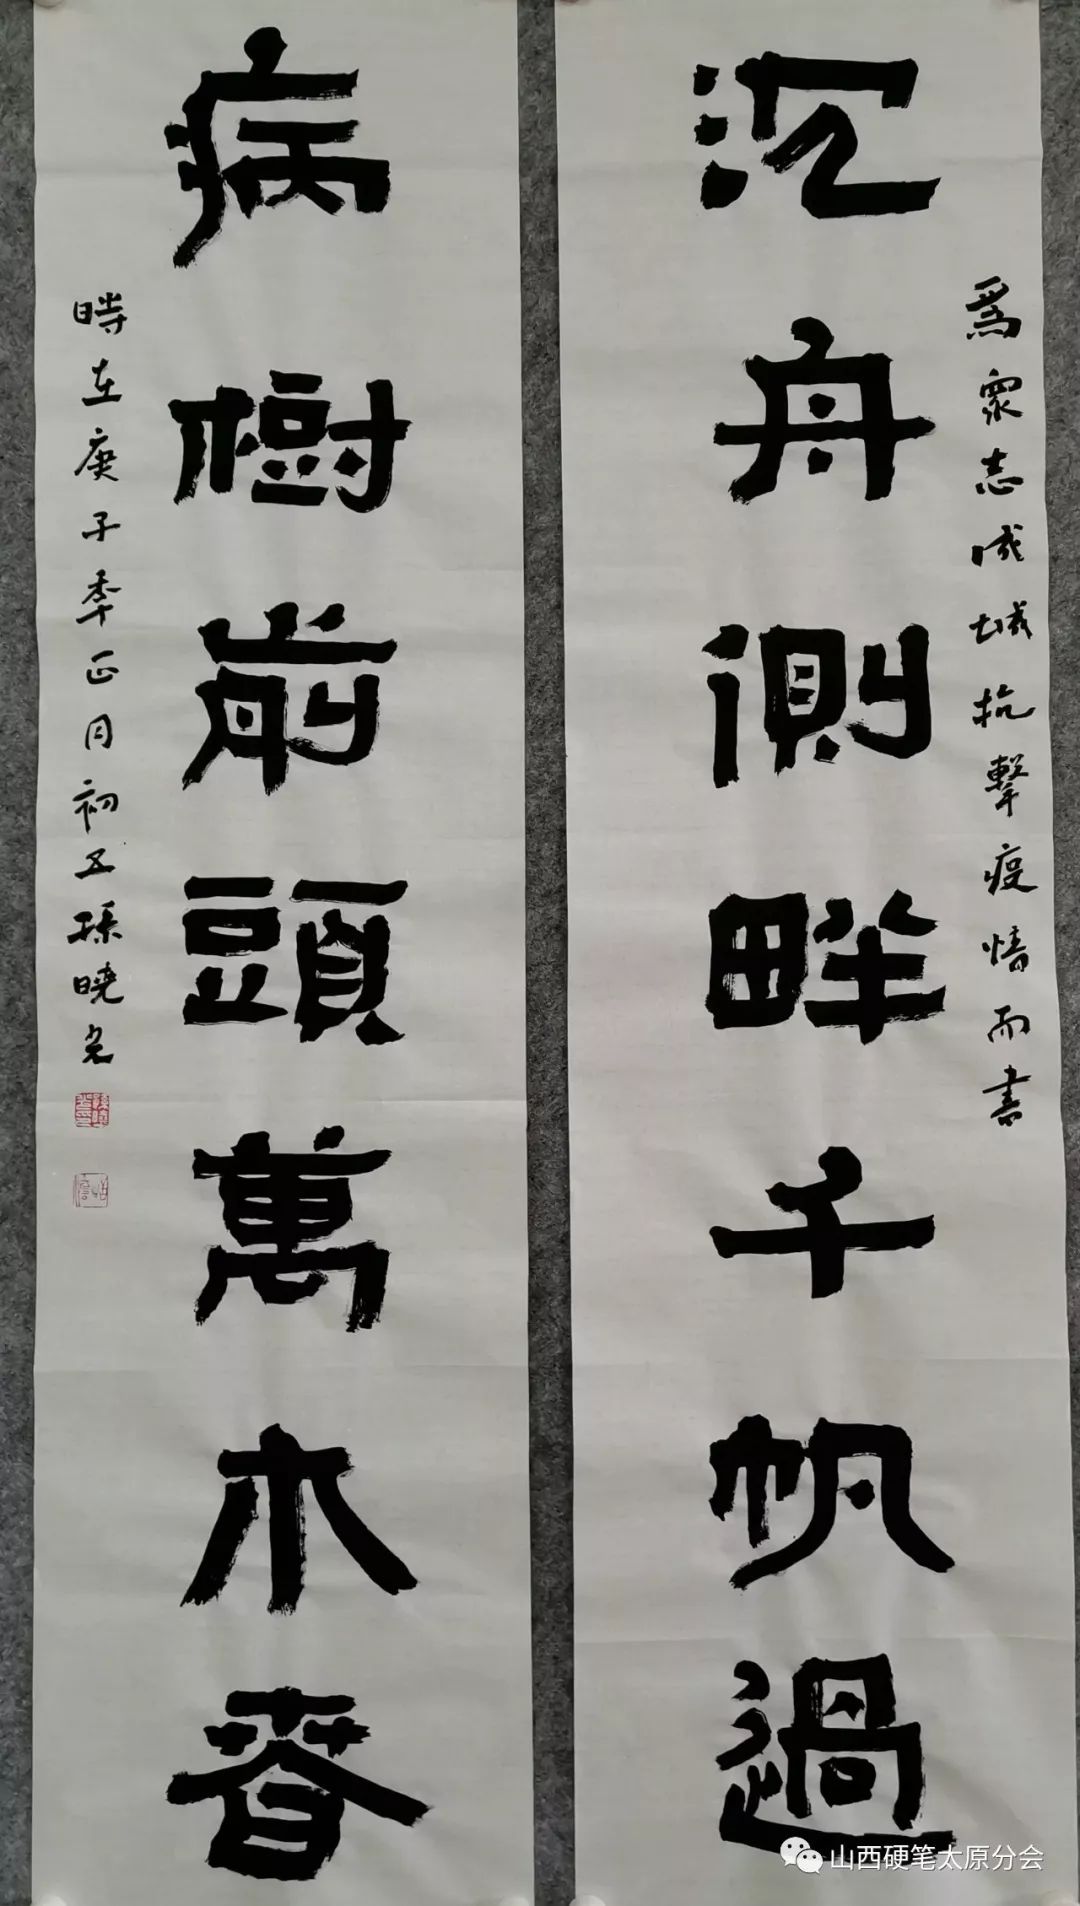 沉舟側畔千帆過
爲眾志成城抗擊疫情而書
病樹前頭萬木春
時在庚子年正月初五孫曉光
山西硬笔太原分会